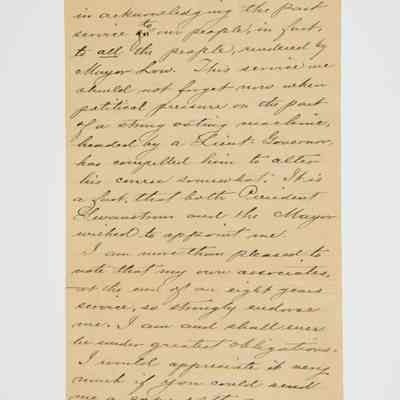 in acknowledging the past
service to our people; in fact,
to all the people, rendered by
Mayor Low. This service we
should not forget now when
political pressure on the part
of a strong voting machine,
headed by a Lieut-Governor,
has compelled him to alter
his course somewhat. It is
a fact, that both President
Swanstrom and the Mayor
wished to appoint me.
I am more than pleased to
note that my own associates,
at the end of an eight years
service, so strongly endorse
me. I am and shall ever
be under greatest obligations.
I would appreciate it very
much if you could send
me a copy of the